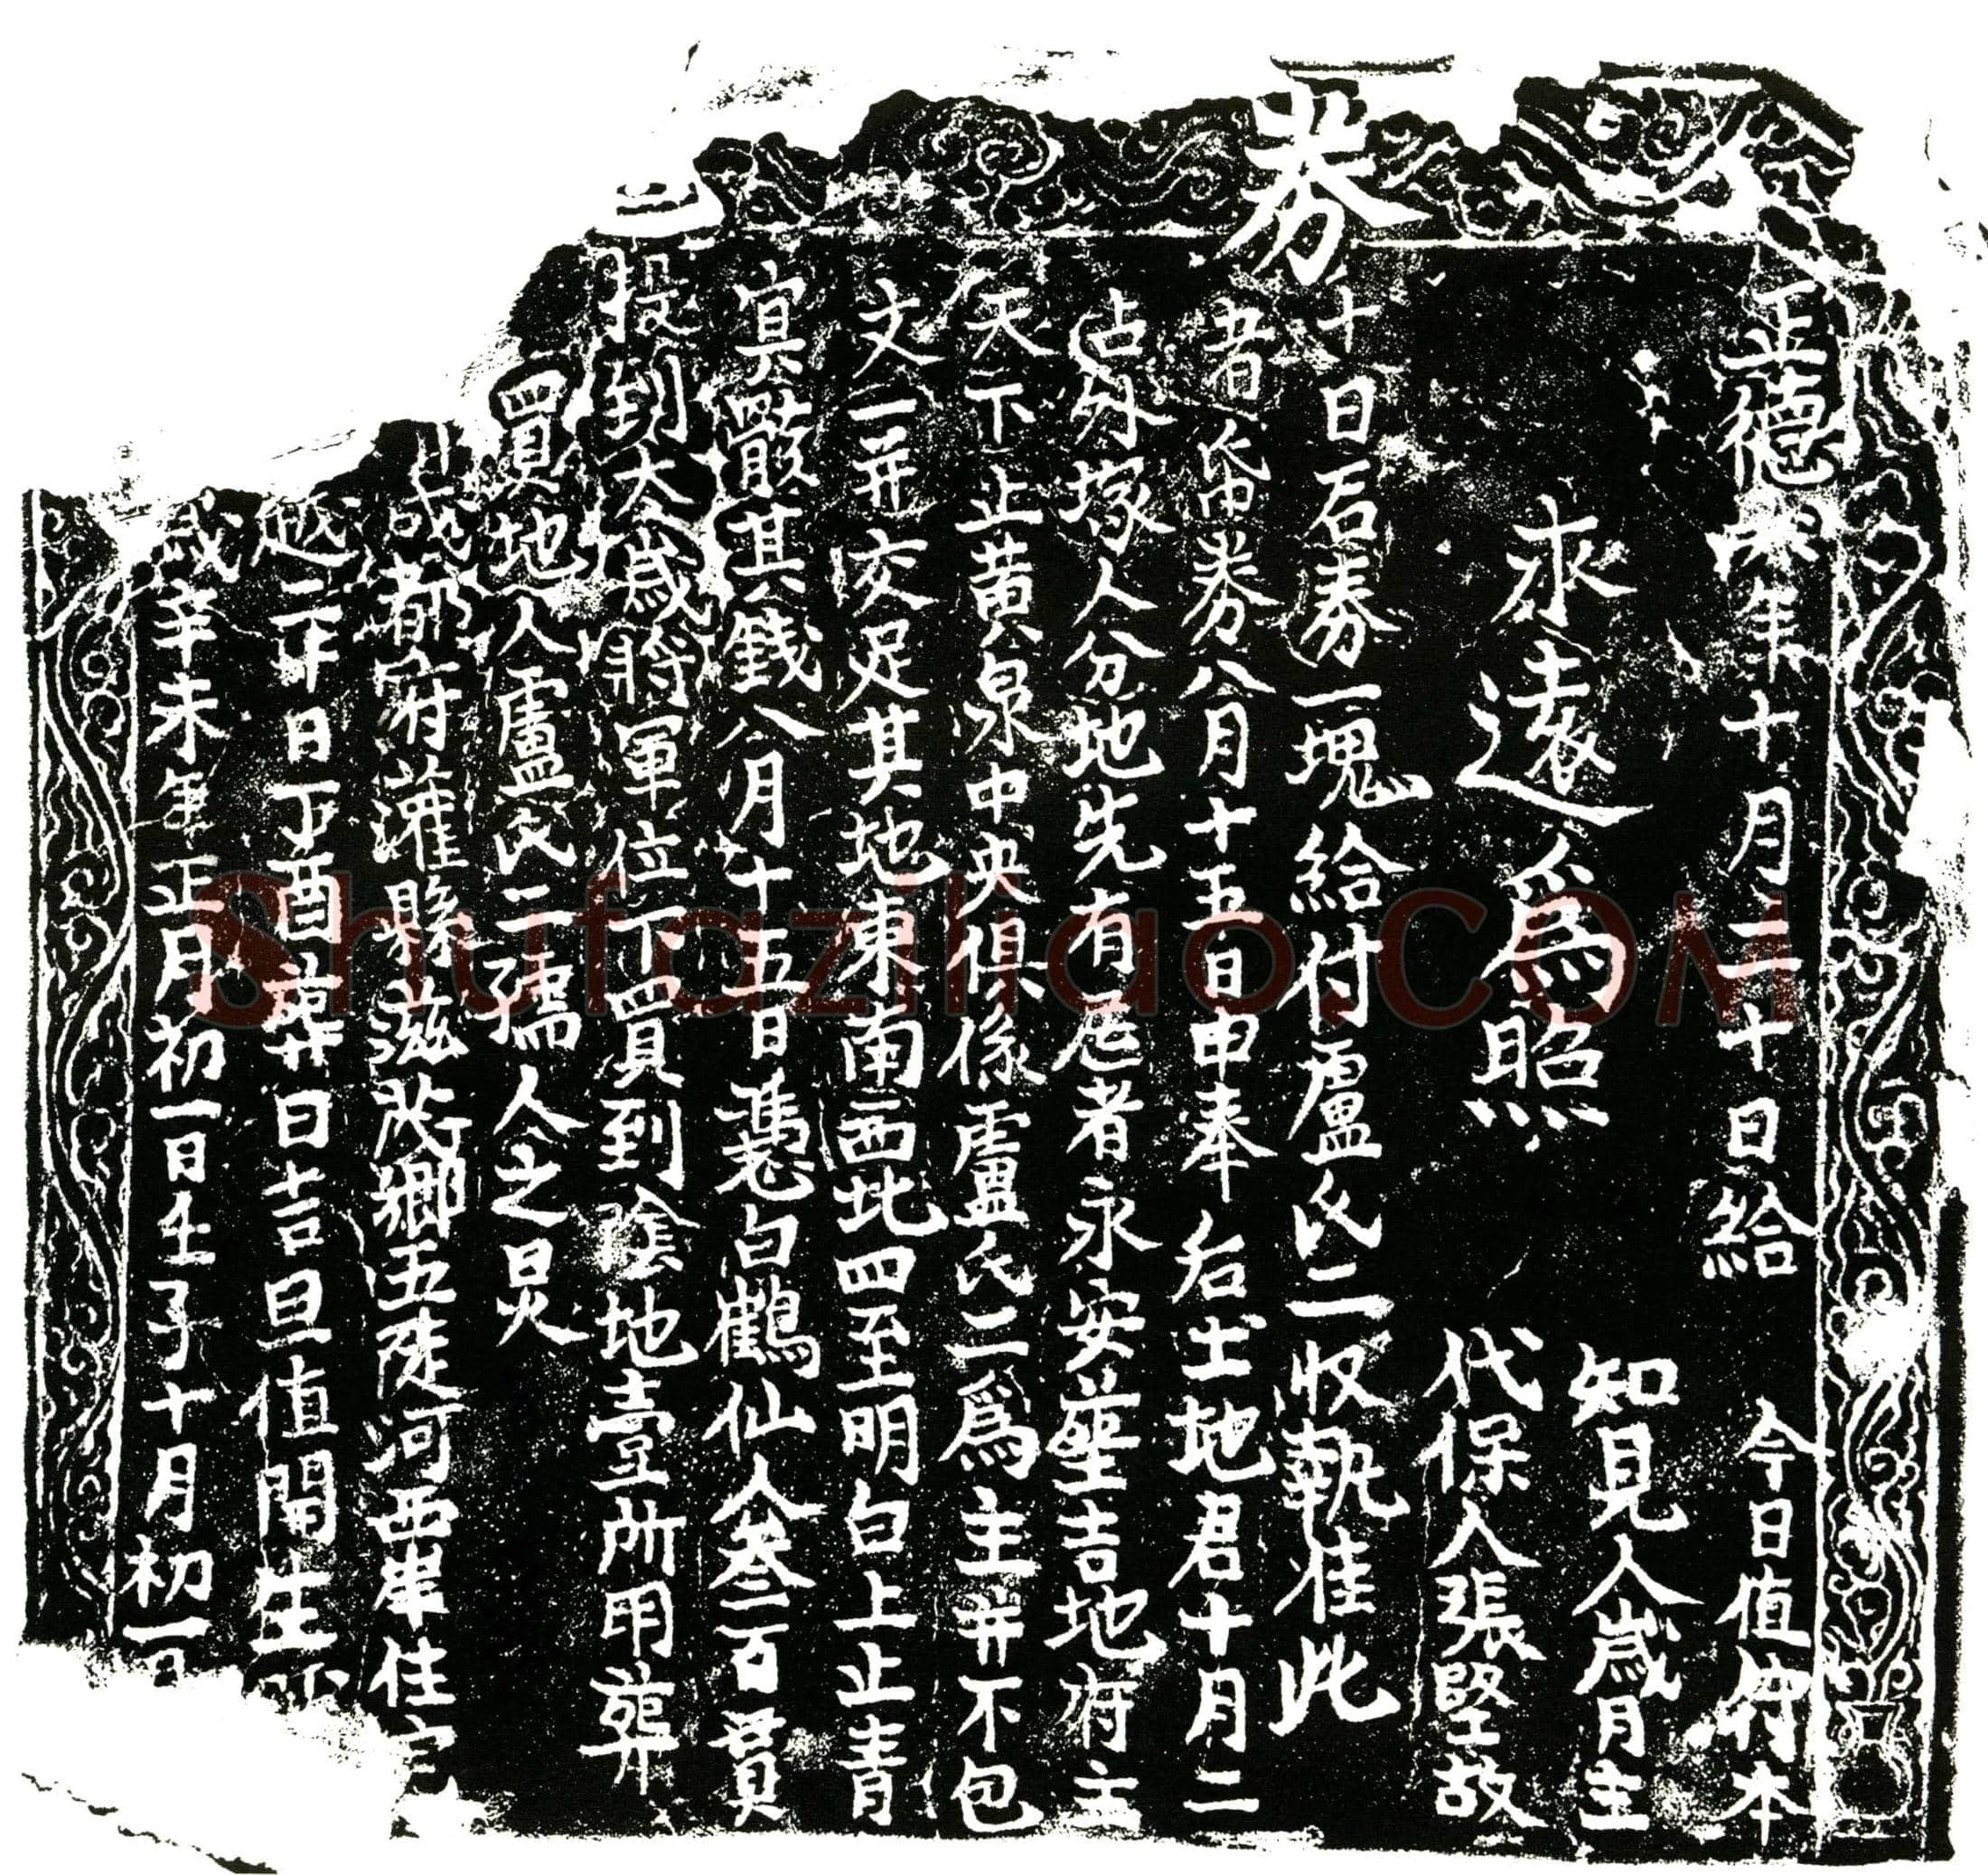 券
歲辛未年正月初一日壬子十月初一日
越二十日丁酉葬日吉旦值開生
成都府灌縣滋茂鄉五陡河西岸住宅
買地人盧氏二孺人之炅
投到太歲將軍位下買到陰地壹所用葬
冥骸其錢八月十五日憑白鶴仙人叁百貫
文一并交足其地東南西北四至明白上止青
天下止黃泉中央俱係盧氏二爲主并不包
占外塚人分地先有居者永安塋吉地府主
者券八月十五日申奉后土地君十月二
十日右券一塊給付盧氏二收執准此
永遠爲照
代保人張堅故
知見人歲月主
正德年十月二十日給 今日值符本
Shufaziliao.COM